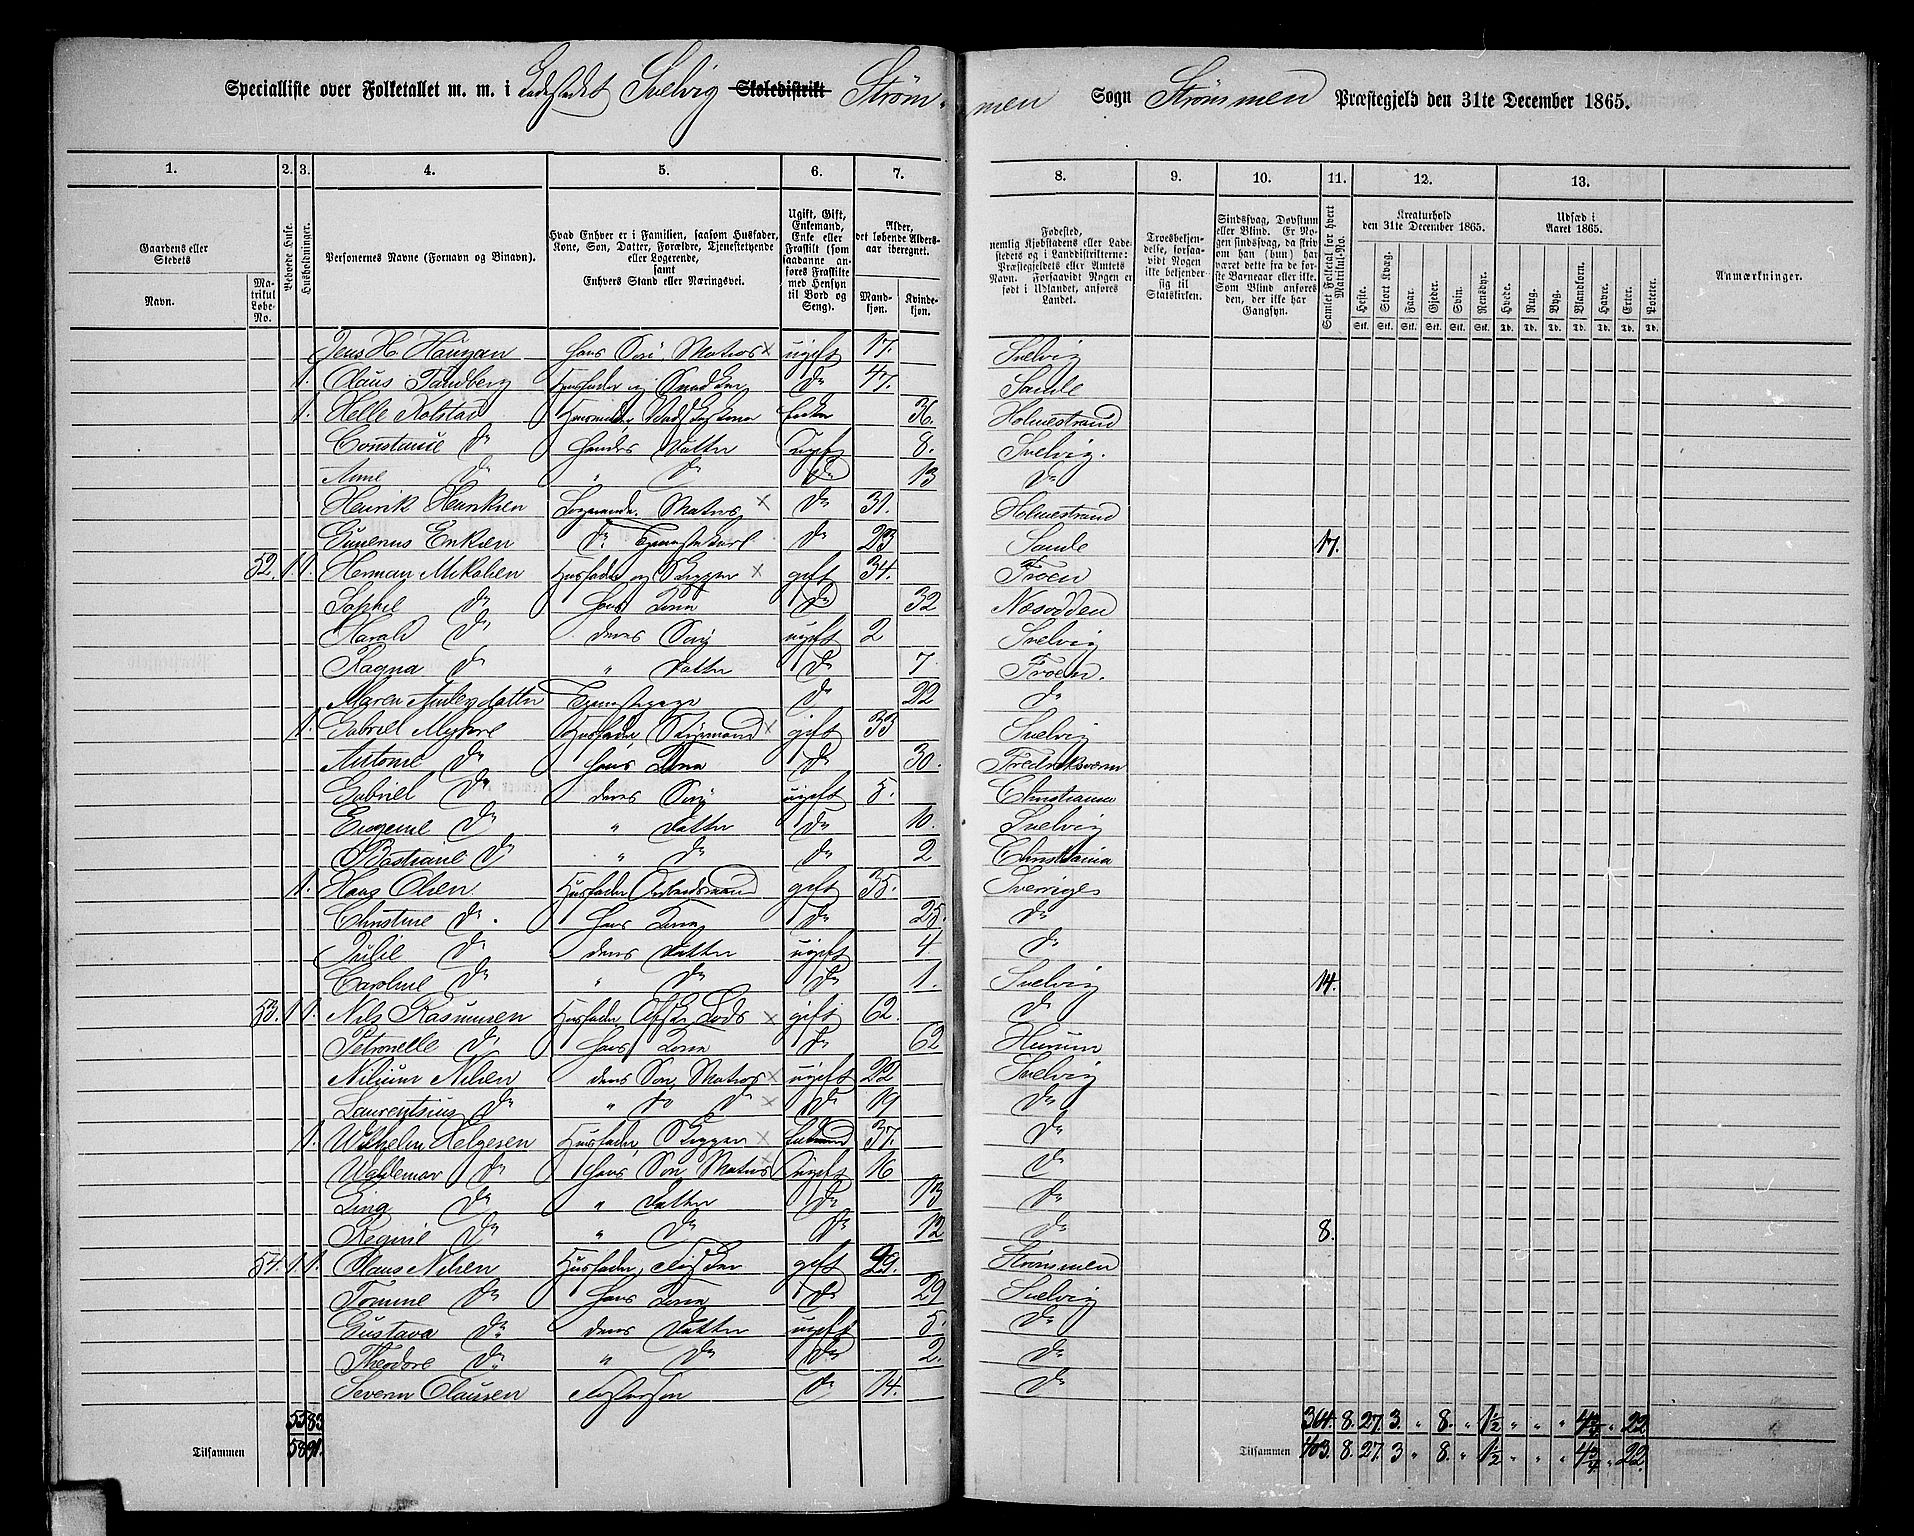 Specialliste over Folketallet m. m. i Ladestedet Svelvig Skoledistrikt Strøm-
men Sogn Strømmen Præstegjeld den 31te December 1865.
1. 2. 3. 4. 5. 6. 7. 8. 9. 10. 11. 12. 13.
Gaardens eller Stedets
Navn.
Matrikul Løbe-No.
Beboede Huse.
Husholdninger.
Personernes Navne (Fornavn og Binavn).
Hvad Enhver er i Familien, saasom Husfader, Kone, Søn, Datter, Forældre, Tjenestetyende eller Logerende, samt Enhvers Stand eller Næringsvei.
Ugift, Gift, Enkemand, Enke eller Fraskilt (som saadanne anføres Fraskilte med Hensyn til Bord og Seng).
Alder, det løbende Aldersaar iberegnet.
Mandkjøn. Kvindekjøn.
Fødested, nemlig Kjøbstadens eller Ladestedets eller i Landdistrikterne: Præstegjeldets eller Amtets Navn. Forsaavidt Nogen er født i Udlandet, anføres Landet.
Troesbekjendelse, forsaavidt Nogen ikke bekjender sig til Statskirken.
Sindssvag, Døvstum eller Blind. Er Nogen sindssvag, da skrives om han (hun) har været dette fra de første Barneaar eller ikke. Som Blind anføres den, der ikke har Gangsyn.
Samlet Folketal for hvert Matrikul-No.
Kreaturhold den 31te December 1865.
Heste. Stort Kvæg. Faar. Gjeder. Svin. Rensdyr.
Stk. Stk. Stk. Stk. Stk. Stk.
Udsæd i Aaret 1865.
Hvede. Rug. Byg. Blandkorn. Havre. Erter. Poteter.
Td. Td. Td. Td. Td. Td. Td.
Anmærkninger.
Jens H Haugan hans Søn, Matros x ugift 17. Svelvig
1. Claus Tandberg Husfader og Snedker do 47. Sande
1. Helle Kolstad 36. Holmestrand
Constance do Hendes Datter ugift 8. Svelvig.
Anne do " do do 13 do
Henrik Henriksen Logerende, Matros x do 31. Holmestrand
Gunerius Eriksen do Tjenestekarl do 23 Sande 17.
52. 1 1. Herman Mikalsen Husfader og Skipper x gift 34. Froen
Sophie do hans Kone do 32 Næsodden
Harald do deres Søn ugift 2 Svelvig
Ragna do " Datter do 7 Froen.
Maren do 22 do
1. Gabriel Myhre Husfader, Styrmand x gift 33 Svelvig
Antonie do hans Kone do 30. Fredriksværn
Gabriel do deres Søn ugift 5. Christiania
Eugenie do " Datter do 10. Svelvig
Bastiane do " do do 2 Christiania
1. Hans Olsen. Husfader, Arbeidsmand gift 35. Sverrige
Christine do. hans Kone do 25. do
Julie do deres Datter ugift 4 do
Caroline do " do do 1. Svelvig 14.
53. 1 1. Nils Rasmussen Husfader, Afsk. Lods x gift 62. do
Petronelle do hans Kone do 62 Hurum
Nilsine Nilsen deres Søn, Matros x ugift 22 Svelvig
Laurentsius do " do do x do 19 do
1. Wilhelm Helgesen Husfader, Skipper x Enkemand 37. do
Waldemar do hans Søn, Matros x ugift 16 do
Lina do " Datter do 13 do
Regine do " do do 12 do 8.
54. 1 1. Claus Nilsen Husfader, gift 29. Strømmen
Tomine do hans Kone do 29 Svelvig
Gustava do deres Datter ugift 5. do
Theodore do " do do 2. do
Severin Claussen Pleiesøn do 14. do
55 83 364. 8. 27. 3. " 8. " 1½ " " " 4¾ " 22
Tilsammen 58 91. Tilsammen 403. 8. 27. 3 " 8. " 1½ " " " 4¾ " 22.